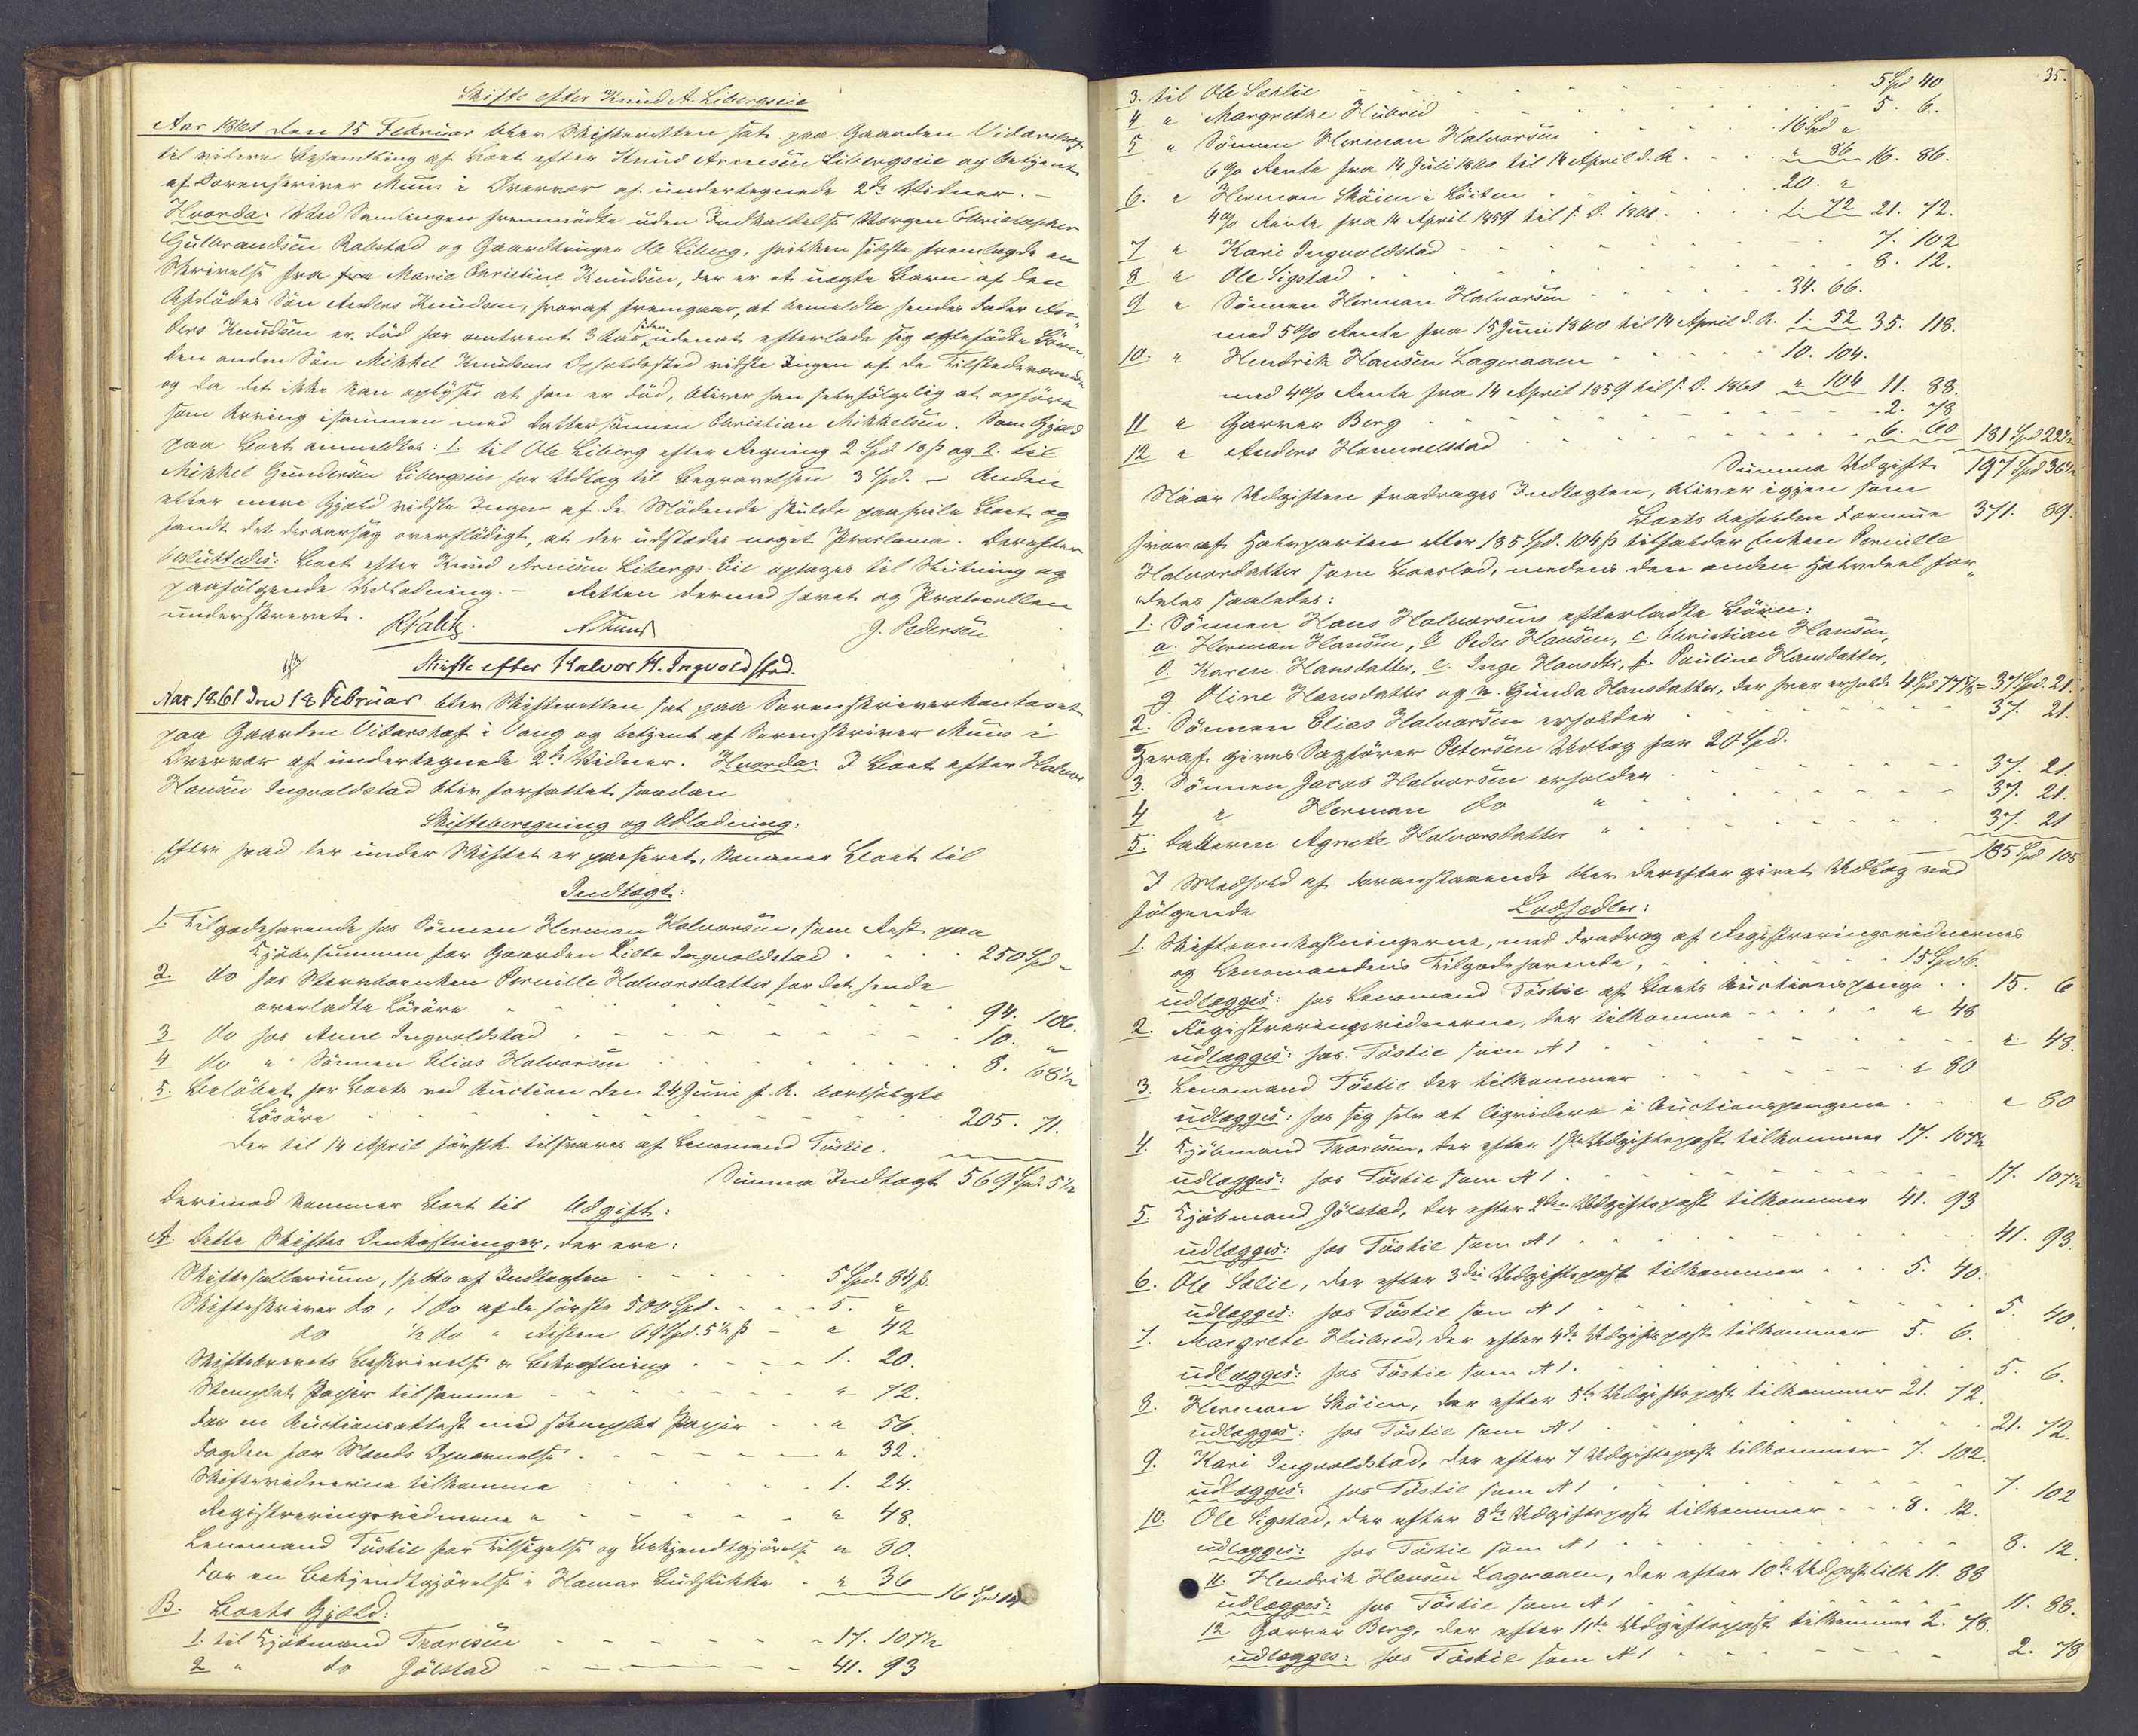 Skifte efter Knud A. Libergseie
Aar 1861 den 15 Februar blev Skifteretten sat paa Gaarden Vidarshof
til videre Behandling af Boet efter Knud Arnesen Libergseie og betjent
af Sorenskriver Muus i Overvær af undertegnede 2de Vidner. —
Hvorda: Ved Samlingen fremmødte uden Indkaldelse Værgen Christopher
Gulbrandsen Rabstad og Gaardbruger Ole Liberg, hvilken sidste fremlagde en
Skrivelse fra fra Marie Christine Knudsen, der er et uægte Barn af den
Afdødes Søn Anders Knudsen, hvoraf fremgaar, at bemeldte hendes Fader An-
ders Knudsen er død for omtrent 3 Aar siden, udenat efterlade sig ægtefødte Børn.
Den anden Søn Mikkel Knudsens Opholdssted vidste Ingen af de Tilstedeværende
og da det ikke kan oplyses at han er død, bliver han selvfølgelig at opføre
som Arving isammen med Dattersønnen Christian Mikkelsen. Som Gjæld
paa Boet anmeldtes: 1. til Ole Liberg efter Regning 2 Spd 18 ß og 2. til
Mikkel Gundersen Libergseie for Udlæg til Begravelsen 3 Spd. — Anden
eller mere Gjæld vidste Ingen af de Mødende skulde paahvile Boet og
fandt det desaarsag overflødigt, at der udstædes noget Proclama. Derefter
besluttedes: Boet efter Knud Arnesen Libergs-Eie optages til Slutning og
paafølgende Udlodning. — Retten dermed hævet og Protocollen
underskrevet.
AMuus
G. Pedersen
Skifte efter Halvor H. Ingvoldstad.
Aar 1861 den 18 Februar blev Skifteretten sat paa Sorenskriverkontoret
paa Gaarden Vidarshof i Vang og betjent af Sorenskriver Muus i
Overvær af undertegnede 2de Vidner. Hvorda: I Boet efter Halvor
Hansen Ingvoldstad blev forfattet saadan
Skifteberegning og Udlodning:
Efter hvad der under Skiftet er passeret, kommer Boet til
Indtægt:
1. Tilgodehavende hos Sønnen Herman Halvorsen, som Rest paa
Kjøbesummen for Gaarden Lille Ingvoldstad . . . . 250 Spd „
2. do hos Sterboenken Pernille Halvorsdatter for det hende
overladte Løsøre 94. 106.
3 do hos Anne Ingvoldstad 10. „
4 do „ Sønnen Elias Halvorsen 8. 68½
5. Beløbet for Boets ved Auction den 24 Juni f. A. bortsolgte
Løsøre 205. 71.
der til 14 April førsth. tilsvares af Lensmand Töstie.
Summa Indtægt 569 Spd. 5½
Derimod kommer Boet til Udgift:
A. Dette Skiftes Omkostninger, der ere:
Skiftesallarium, af Indtægten 5 Spd. 84 ß.
Skifteskriver do, 1 do af de første 500 Spd. 5. „
do ½ do „ Resten 69 Spd. 5½ ß „ 42
Skiftebrevets Beskrivelse & Bekræftning 1. 20.
Stemplet Papir tilsamme „ 72.
For en Auctionsattest med stemplet Papir „ 56.
Fogden for Mands Opnævnelse „ 32.
Skiftevidnerne tilkomme 1. 24.
Registreringsvidnerne „ „ 48.
Lensmand Töstie for Tilsigelse og Bekjendtgjørelse „ 80.
For en Bekjendtgjørelse i Hamar Budstikke „ 36 16 Spd 14
B. Boets Gjæld:
1. til Kjøbmand Thoresen 17. 107½
2 „ do Gölstad 41. 93
35.
3. til Ole Sælie 5 Spd 40
4 „ Margrethe Hubred 5. 6.
5 „ Sønnen Herman Halvorsen 16 Spd „
6 % Rente fra 14 Juli 1860 til 14 April d. A. „ 86 16. 86.
6. „ Herman Skøien i Löiten 20. „
4 % Rente fra 14 April 1859 til s. D. 1861. 1. 72 21. 72.
7 „ Kari Ingvoldstad 7. 102
8 „ Ole Sigstad 8. 12.
9 „ Sønnen Herman Halvorsen 34. 66.
med 5 % Rente fra 15 Juni 1860 til 14 April d. A. 1. 52 35. 118.
10. „ Hendrik Hansen Lageraaen 10. 104.
med 4 % Rente fra 14 April 1859 til s. D. 1861 „ 104 11. 88.
11 „ Garver Berg 2. 78
12 „ Anders Hommelstad 6. 60 181 Spd 22½
Summa Udgift 197 Spd 36½
Naar Udgiften fradrages Indtægten, bliver igjen som
Boets beholdne Formue 371. 89.
hvoraf Halvparten eller 185 Spd. 104 ß tilfalder Enken Pernille
Halvorsdatter som Boeslod, medens den anden Halvdeel for-
deles saaledes:
1. Sønnen Hans Halvorsens efterladte Børn:
a. Herman Hansen, b Peder Hansen, c Christian Hansen,
d. Karen Hansdatter, e. Inge Hansdtr, f. Pauline Hansdatter,
g Oline Hansdatter og h. Gunda Hansdatter, der hver erholde 4 Spd 77⅝ = 37 Spd. 21.
2. Sønnen Elias Halvorsen erholder 37. 21.
Heraf gives Sagfører Petersen Udlæg for 20 Spd.
3. Sønnen Jacob Halvorsen erholder 37. 21.
4 „ Herman do „ 37. 21.
5. Datteren Agnete Halvorsdatter „ 37. 21
185 Spd 105
I Medhold af Foranstaaende blev derefter givet Udlæg ved
følgende Lodsedler:
1. Skifteomkostningerne, med Fradrag af Registreringsvidnernes
og Lensmandens Tilgodehavende, 15 Spd 6.
udlægges: hos Lensmand Töstie af Boets Auctionspenge . . 15. 6
2. Registreringsvidnerne, der tilkomme „ 48
udlægges: hos Töstie som N 1 „ 48.
3. Lensmand Töstie der tilkommer „ 80
udlægges: hos sig selv at liqvidere i Auctionspengene „ 80
4. Kjøbmand Thoresen, der efter 1ste Udgiftspost tilkommer 17. 107½
udlægges: hos Töstie som N 1 17. 107½
5. Kjøbmand Gölstad, der efter 2den Udgiftspost tilkommer 41. 93
udlægges: hos Töstie som N 1 41. 93.
6. Ole Sælie, der efter 3die Udgiftspost tilkommer 5. 40.
udlægges: hos Töstie som N 1 5. 40.
7. Margrete Hubred, der efter 4de Udgiftspost tilkommer 5. 6.
udlægges: hos Töstie som N 1. 5. 6.
8. Herman Skøien, der efter 5te Udgiftspost tilkommer 21. 72.
udlægges: hos Töstie som N 1 21. 72.
9. Kari Ingvoldstad, der efter 7 Udgiftspost tilkommer 7. 102.
udlægges: hos Töstie som N 1 7. 102
10. Ole Sigstad, der efter 8de Udgiftspost tilkommer 8. 12.
udlægges: hos Töstie som N 1 8. 12.
11. Hendrik Hansen Lageraaen, der efter 10de Udgpost tilk 11. 88
udlægges: hos Töstie som N 1 11. 88.
12 Garver Berg, der efter 11te Udgiftspost tilkommer 2. 78.
udlægges: hos Töstie som N 1 2. 78